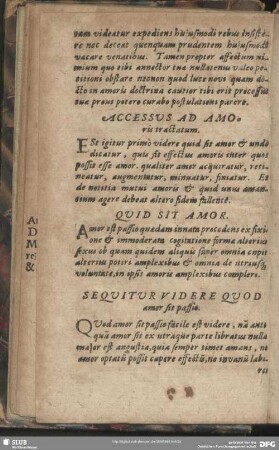 nam videatur expediens huiusmodi rebus insiste
re nec deceat quenquam prudentem huiusmodi
vacare venatibus. Tamen propter affectum ni
mium quo tibi annector tuæ nullatenus valeo pe
titioni obstare neonon quod luce novi quam do
cto in amoris doctrina cautior tibi erit processus
tuæ prout potero curabo postulationi parere.
ACCESSUS AD AMO
ris tractatum.
ESt igitur primò videre quid sit amor & unde
dicatur, quis sit effectus amoris inter quos
possit esse amor. qualiter amor acquiratur, reti,
neatur, augmentatur, minuatur, finiatur. Et
de notitia mutui amoris & quid unus aman
tium agere debeat altero fidem fallente.
QUID SIT AMOR.
Amor est passio quædam innata procedens ex fixi
one & immoderata cogitatione formæ alterius
sexus ob quam quidem aliquis super omnia cupit
alterius potiri amplexibus & omnia de utriusq;
voluntate, in ipsis amoris amplexibus compleri.
SEQUITUR VIDERE QUOD
amor sit passio.
QUod amor sit passio facile est videre, nã ante
quã amor sit ex utraque parte libratus nulla
major est angustia, quia semper timet amans, ne
amor optatũ possit capere effectũ, ne in vanũ labo
res
A
D
M
re
&
SLUB
DFG